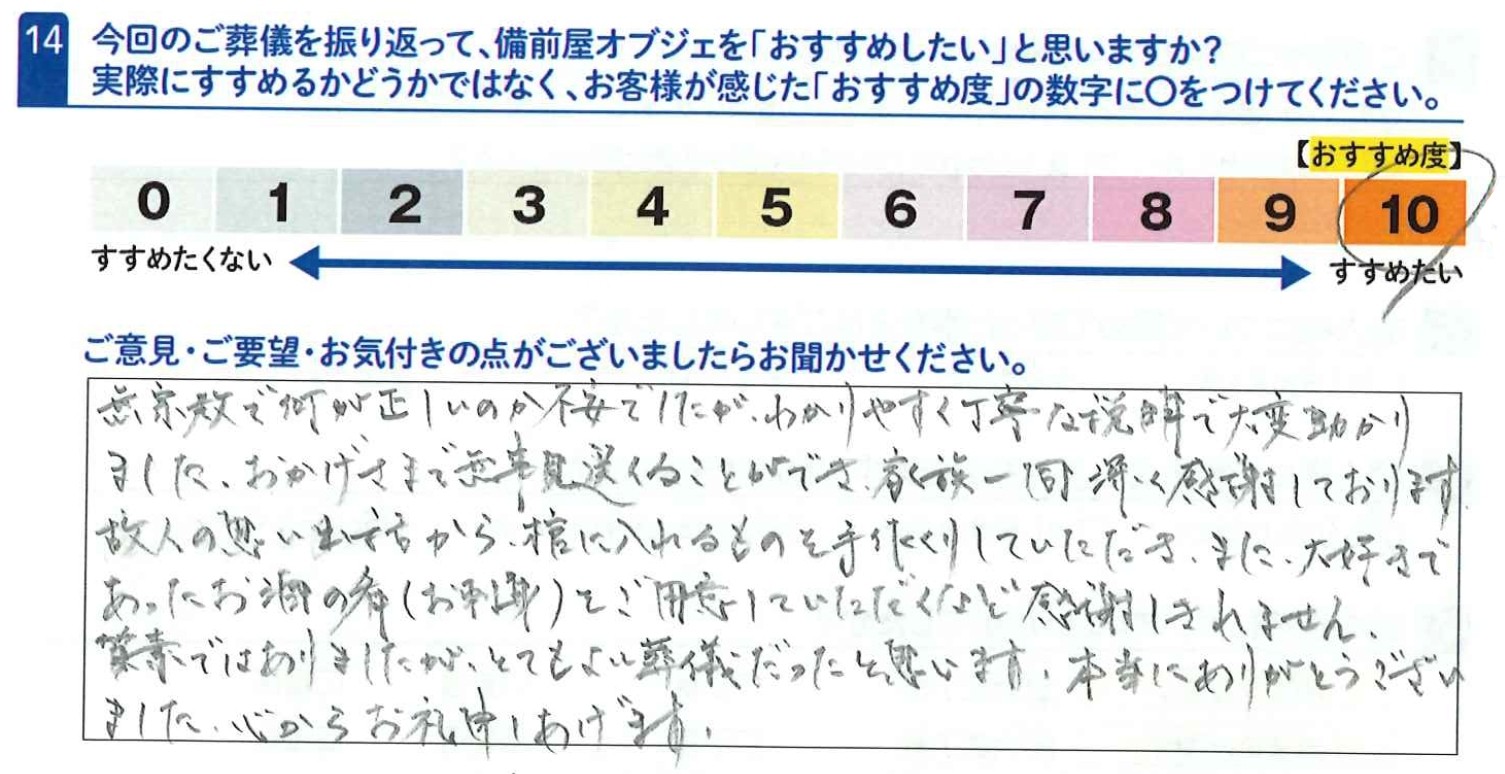 14
今回のご葬儀を振り返って、備前屋オブジェを「おすすめしたい」と思いますか?
実際にすすめるかどうかではなく、お客様が感じた「おすすめ度」の数字に〇をつけてください。
【おすすめ度】
0 1 2 3 4 5 6 7 8 9 10
すすめたくない すすめたい
ご意見・ご要望・お気付きの点がございましたらお聞かせください。
無宗教で何が正しいのか不安でしたが、わかりやすく丁寧な説明で大変助かり
ました、おかげさまで無事見送くることができ、家族一同深く感謝しております。
故人の思い出話から、棺に入れるものを手作くりしていただき、また、大好きで
あったお酒の肴(お刺身)をご用意していただくなど感謝しきれません、
質素ではありましたが、とてもよい葬儀だったと思います、本当にありがとうござい
ました、心からお礼申しあげます、